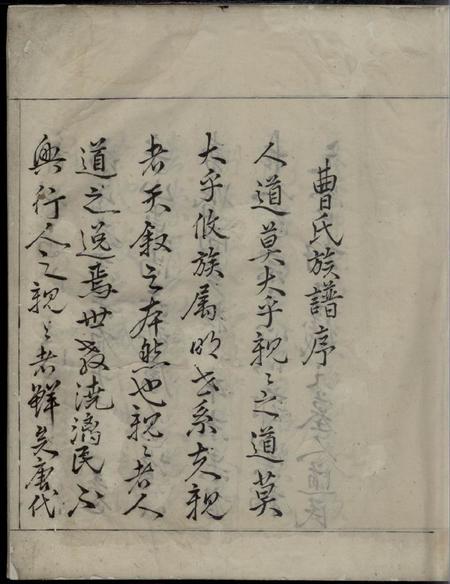 曹氏族譜序
人道莫大乎親〻之道莫
大乎收族属明世系夫親
者天叙之本然也親〻者人
道之焉世教澆漓民不
興行人之親〻者鮮矣唐代